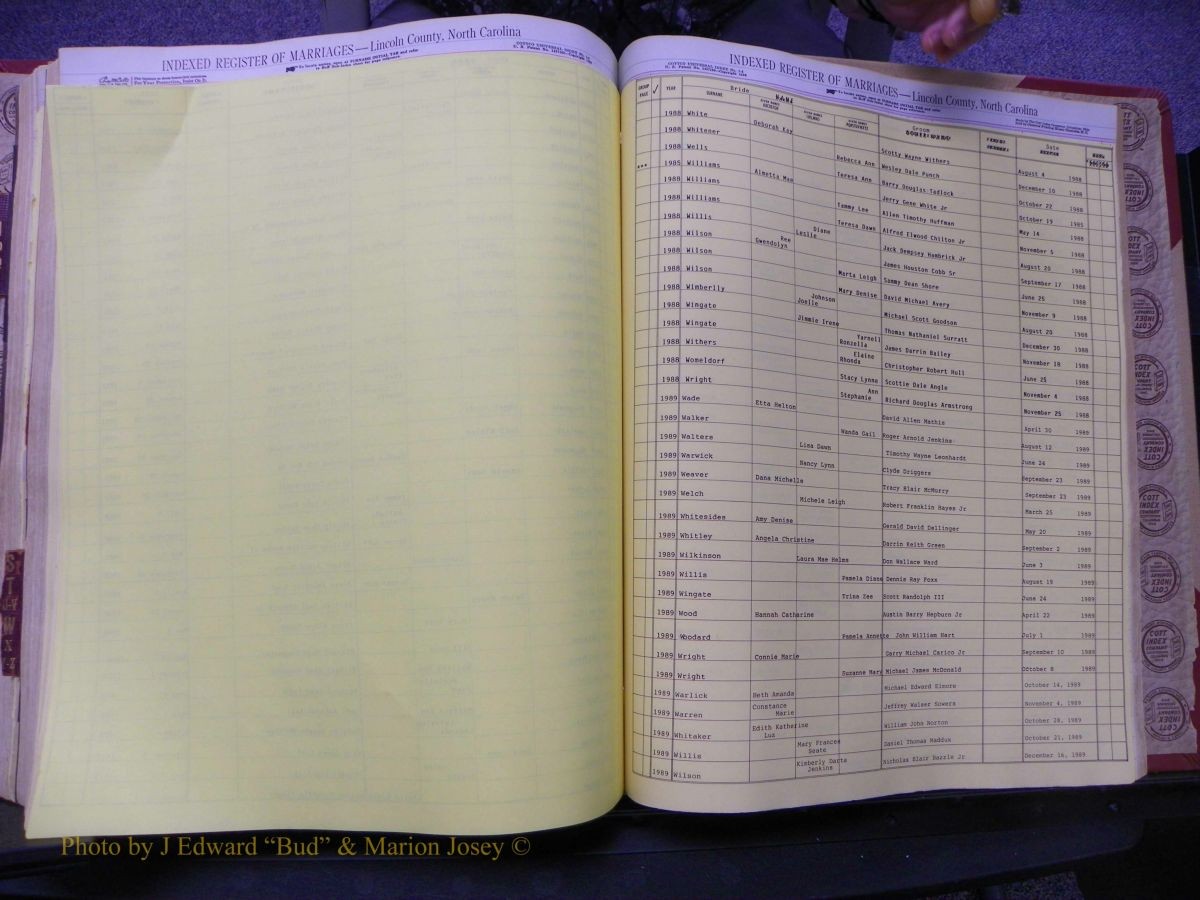 INDEXED REGISTER OF MARRIAGES—Lincoln County, North Carolina
INDEXED REGISTER OF MARRIAGES—Lincoln County, North Carolina
YEAR SURNAME Bride NAME Groom Date
1988 White Deborah Kay Scotty Wayne Withers August 4 1988
1988 Whitener Rebecca Ann Wesley Dale Punch December 10 1988
1988 Wells Teresa Ann Barry Douglas Tadlock October 22 1988
*** 1985 Williams Almetta Mae Jerry Gene White Jr October 19 1985
1988 Williams Tammy Lee Allen Timothy Huffman May 14 1988
1988 Williams Teresa Dawn Alfred Elwood Chilton Jr November 5 1988
1988 Willis Diane Leslie Jack Dempsey Hambrick Jr August 20 1988
1988 Wilson Ree Gwendolyn James Houston Cobb Sr September 17 1988
1988 Wilson Marta Leigh Sammy Dean Shore June 25 1988
1988 Wilson Mary Denise David Michael Avery November 9 1988
1988 Wimberlly Johnson Joelle Michael Scott Goodson August 20 1988
1988 Wingate Jimmie Irene Thomas Nathaniel Surratt December 30 1988
1988 Wingate Yarnell Ronzella James Darrin Bailey November 18 1988
1988 Withers Elaine Rhonda Christopher Robert Hull June 25 1988
1988 Womeldorf Stacy Lynne Scottie Dale Angle November 4 1988
1988 Wright Ann Stephanie Richard Douglas Armstrong November 25 1988
1989 Wade Etta Helton David Allen Mathis April 30 1989
1989 Walker Wanda Gail Roger Arnold Jenkins August 12 1989
1989 Walters Lisa Dawn Timothy Wayne Leonhardt June 24 1989
1989 Warwick Nancy Lynn Clyde Driggers September 23 1989
1989 Weaver Dana Michelle Tracy Blair McMurry September 23 1989
1989 Welch Michele Leigh Robert Franklin Hayes Jr March 25 1989
1989 Whitesides Amy Denise Gerald David Dellinger May 20 1989
1989 Whitley Angela Christine Darrin Keith Green September 2 1989
1989 Wilkinson Laura Mae Helms Don Wallace Ward June 3 1989
1989 Willis Pamela Diane Dennie Ray Foxx August 19 1989
1989 Wingate Trina Zee Scott Randolph III June 24 1989
1989 Wood Hannah Catharine Austin Barry Hepburn Jr April 22 1989
1989 Woodard Pamela Annette John William Hart July 1 1989
1989 Wright Connie Marie Garry Michael Carico Jr September 10 1989
1989 Wright Suzanne Mary Michael James McDonald October 8 1989
1989 Warlick Beth Amanda Michael Edward Elmore October 14, 1989
1989 Warren Constance Marie Jeffrey Walser Sowers November 4, 1989
1989 Whitaker Edith Katherine Luz William John Norton October 28, 1989
1989 Willis Mary Frances Seate Daniel Thomas Maddux October 21, 1989
1989 Wilson Kimberly Darta Jenkins Nicholas Blair Bazzle Jr December 16, 1989
COTT INDEX COMPANY
Photo by J Edward “Bud” & Marion Josey ©